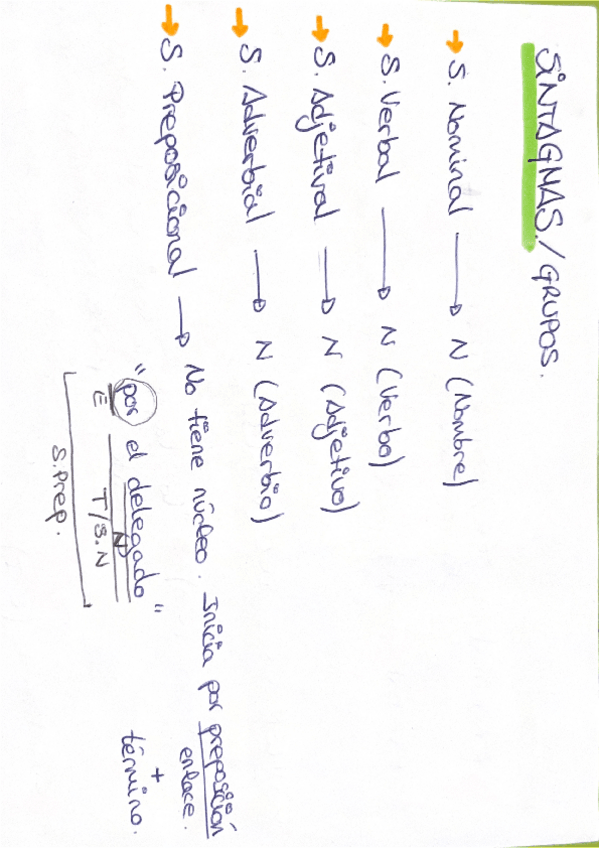 SINTAGMAS / GRUPOS.
S. Nominal → N (Nombre)
S. Verbal → N (Verbo)
S. Adjetival → N (Adjetivo)
S. Adverbial → N (Adverbio)
S. Preposicional → No tiene núcleo. Inicia por preposición
enlace.
+
término.
"por el delegado"
E N
T/S.N
S.Prep.